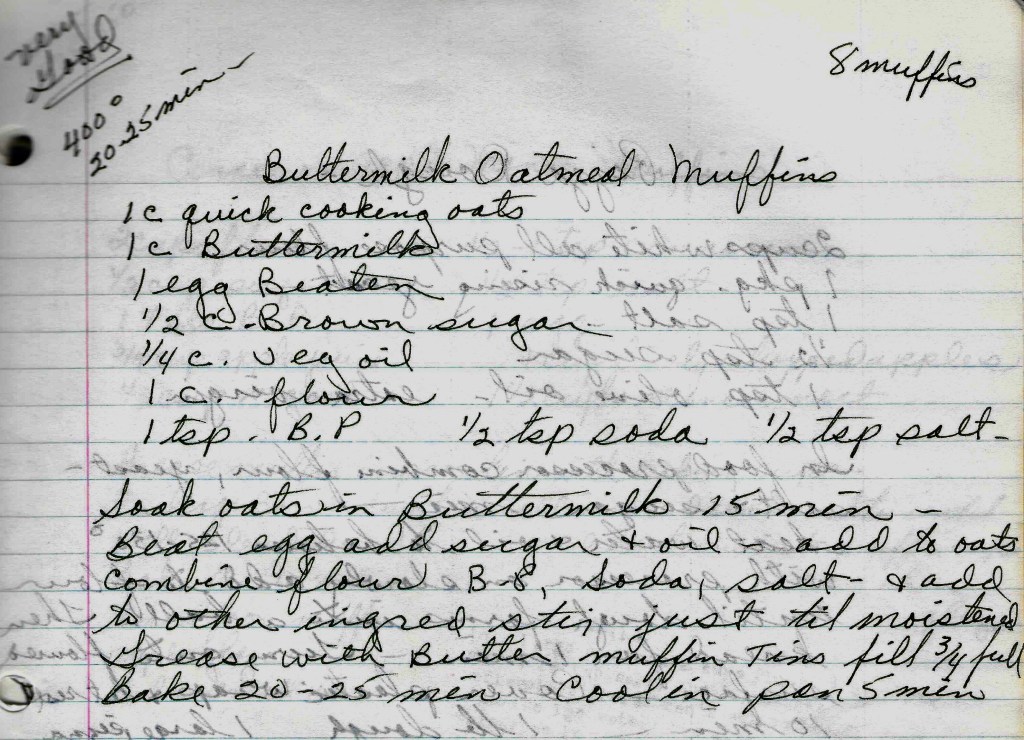 very
Good
400°
20-25 min -
8 muffins
Buttermilk Oatmeal Muffins
1 c quick cooking oats
1 c Buttermilk
1 egg Beaten
1/2 c. Brown sugar
1/4 c. veg oil
1 c. flour
1 tsp. B.P 1/2 tsp soda 1/2 tsp salt -
Soak oats in Buttermilk 15 min -
Beat egg add sugar & oil - add to oats
Combine flour B.P, Soda, salt - & add
to other ingred stir just til moistened
Grease with Butter muffin Tins fill 3/4 full
Bake 20-25 min Cool in pan 5 min